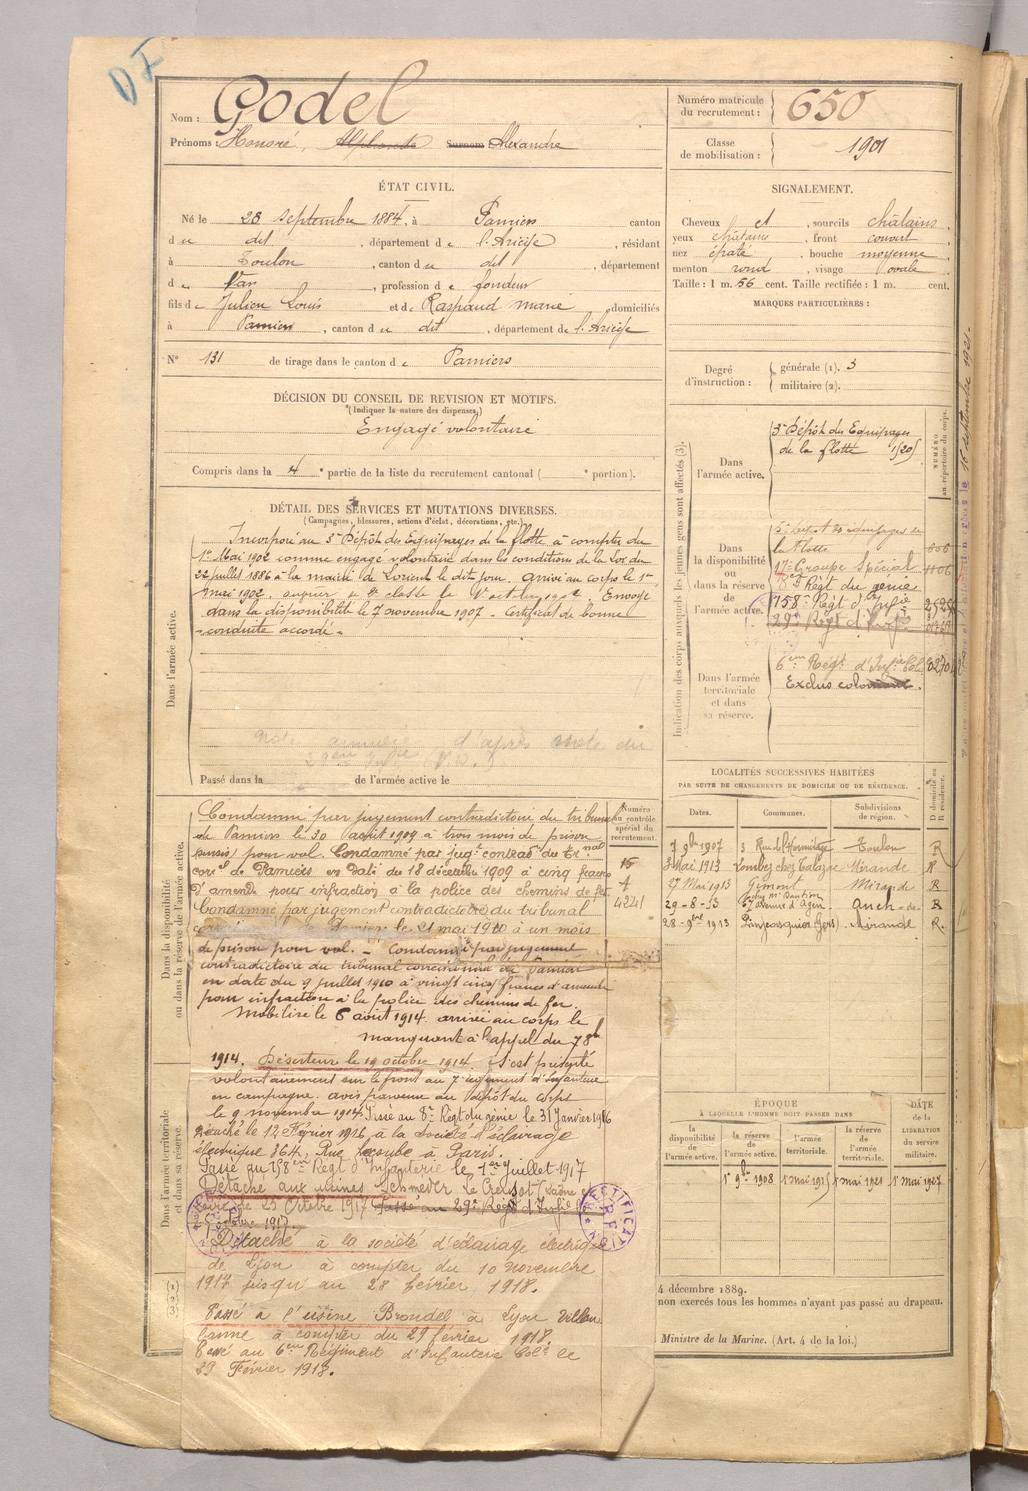 DF
Nom : Godel
Prénoms : Honoré, Alphonse Surnom Alexandre
Numéro matricule du recrutement : 650
Classe de mobilisation : 1901
ÉTAT CIVIL.
Né le 28 septembre 1884, à Pamiers canton
d u dit, département d e l'Ariège, résidant
à Toulon, canton d u dit, département
d u Var, profession d e fondeur
fils d e Julien Louis et d e Raspaud Marie domiciliés
à Pamiers, canton d u dit, département de l'Ariège
N° 131 de tirage dans le canton d e Pamiers
SIGNALEMENT.
Cheveux et, sourcils châtains,
yeux châtains, front couvert,
nez épaté, bouche moyenne,
menton rond, visage ovale
Taille : 1 m. 56 cent. Taille rectifiée : 1 m. cent.
MARQUES PARTICULIÈRES :
Degré d'instruction :
générale (1). 3
militaire (2).
DÉCISION DU CONSEIL DE REVISION ET MOTIFS.
(Indiquer la nature des dispenses.)
Engagé volontaire
Compris dans la 4e partie de la liste du recrutement cantonal ( e portion).
DÉTAIL DES SERVICES ET MUTATIONS DIVERSES.
(Campagnes, blessures, actions d'éclat, décorations, etc.)
Dans l'armée active.
Incorporé au 3e Dépôt des Équipages de la flotte à compter du
1er Mai 1902 comme engagé volontaire dans les conditions de la Loi du
22 juillet 1886 à la mairie de Lorient le dit jour. Arrivé au corps le 1er
Mai 1902. Envoyé
dans la disponibilité le 7 novembre 1907 - Certificat de bonne
conduite accordé -
d'après note du
Passé dans la de l'armée active le
Indication des corps auxquels les jeunes gens sont affectés (3).
NUMÉRO au répertoire du corps.
Dans l'armée active.
3e Dépôt des Equipages
de la flotte
Dans la disponibilité ou dans la réserve de l'armée active.
5e Dépôt des équipages de
la Flotte
17e Groupe Spécial 1106
8e Régt du génie
158e Régt d'Infie
29e Régt d'Infie
Dans l'armée territoriale et dans sa réserve.
6eme Régt d'Infie Cole
Exclus
LOCALITÉS SUCCESSIVES HABITÉES
PAR SUITE DE CHANGEMENTS DE DOMICILE OU DE RÉSIDENCE.
Dates. Communes. Subdivisions de région. D domicile ou R résidence.
7 9bre 1907 3 Rue de l'Hermitage Toulon R
3 Mai 1913 Lombez chez Mirande R
17 Mai 1913 Gimont Mirande R
29-8-13 Avenue d'Agen Auch R
28-9bre 1913 (Gers) Mirande R.
Dans la disponibilité ou dans la réserve de l'armée active.
Numéro au contrôle spécial du recrutement.
15
4241
Condamné par jugement contradictoire du tribunal
de Pamiers le 30 1909 à trois mois de prison
(sursis) pour vol. Condamné par jugt contrad. du Trnal
correl de Pamiers en date du 18 décembre 1909 à cinq francs
d'amende pour infraction à la police des chemins de fer
Condamné par jugement contradictoire du tribunal
correctionnel de Pamiers le 21 mai 1910 à un mois
de prison pour vol. - Condamné par jugement
contradictoire du tribunal correctionnel de Pamiers
en date du 9 juillet 1910 à vingt cinq francs d'amende
pour infraction à la police des chemins de fer.
Mobilisé le 6 août 1914. arrivé au corps le
manquant à l'appel du 7 8bre
1914. Déserteur le 19 octobre 1914. S'est présenté
volontairement sur le front au 7e régiment d'Infanterie
en campagne. avis parvenu au Dépôt du corps
le 9 novembre 1914. Passé au 8e Régt du génie le 31 janvier 1916
Dans l'armée territoriale et dans sa réserve.
Détaché le 12 Février 1916 à la Société d'éclairage
électrique 364, Rue Lecourbe à Paris.
Passé au 158eme Régt d'Infanterie le 1er Juillet 1917
Détaché aux usines Schneider Le Creusot (Saône et
Loire) le 25 Octobre 1917 Passé au 29e Régt d'Infie
octobre 1917
RECTIFICATION
Détaché à la société d'éclairage électrique
de Lyon à compter du 10 novembre
1917 jusqu'au 28 février 1918.
Passé à l'usine Brondel à Lyon Villeur
banne à compter du 29 février 1918.
Passé au 6eme Régiment d'Infanterie Cole le
29 Février 1918.
ÉPOQUE
À LAQUELLE L'HOMME DOIT PASSER DANS
la disponibilité de l'armée active. la réserve de l'armée active. l'armée territoriale. la réserve de l'armée territoriale. DATE de la LIBÉRATION du service militaire.
1er 9bre 1908 1 mai 1915 1 mai 1921 1er mai 1927
4 décembre 1889.
non exercés tous les hommes n'ayant pas passé au drapeau.
Ministre de la Marine. (Art. 4 de la loi.)
(1)
(2)
(3)